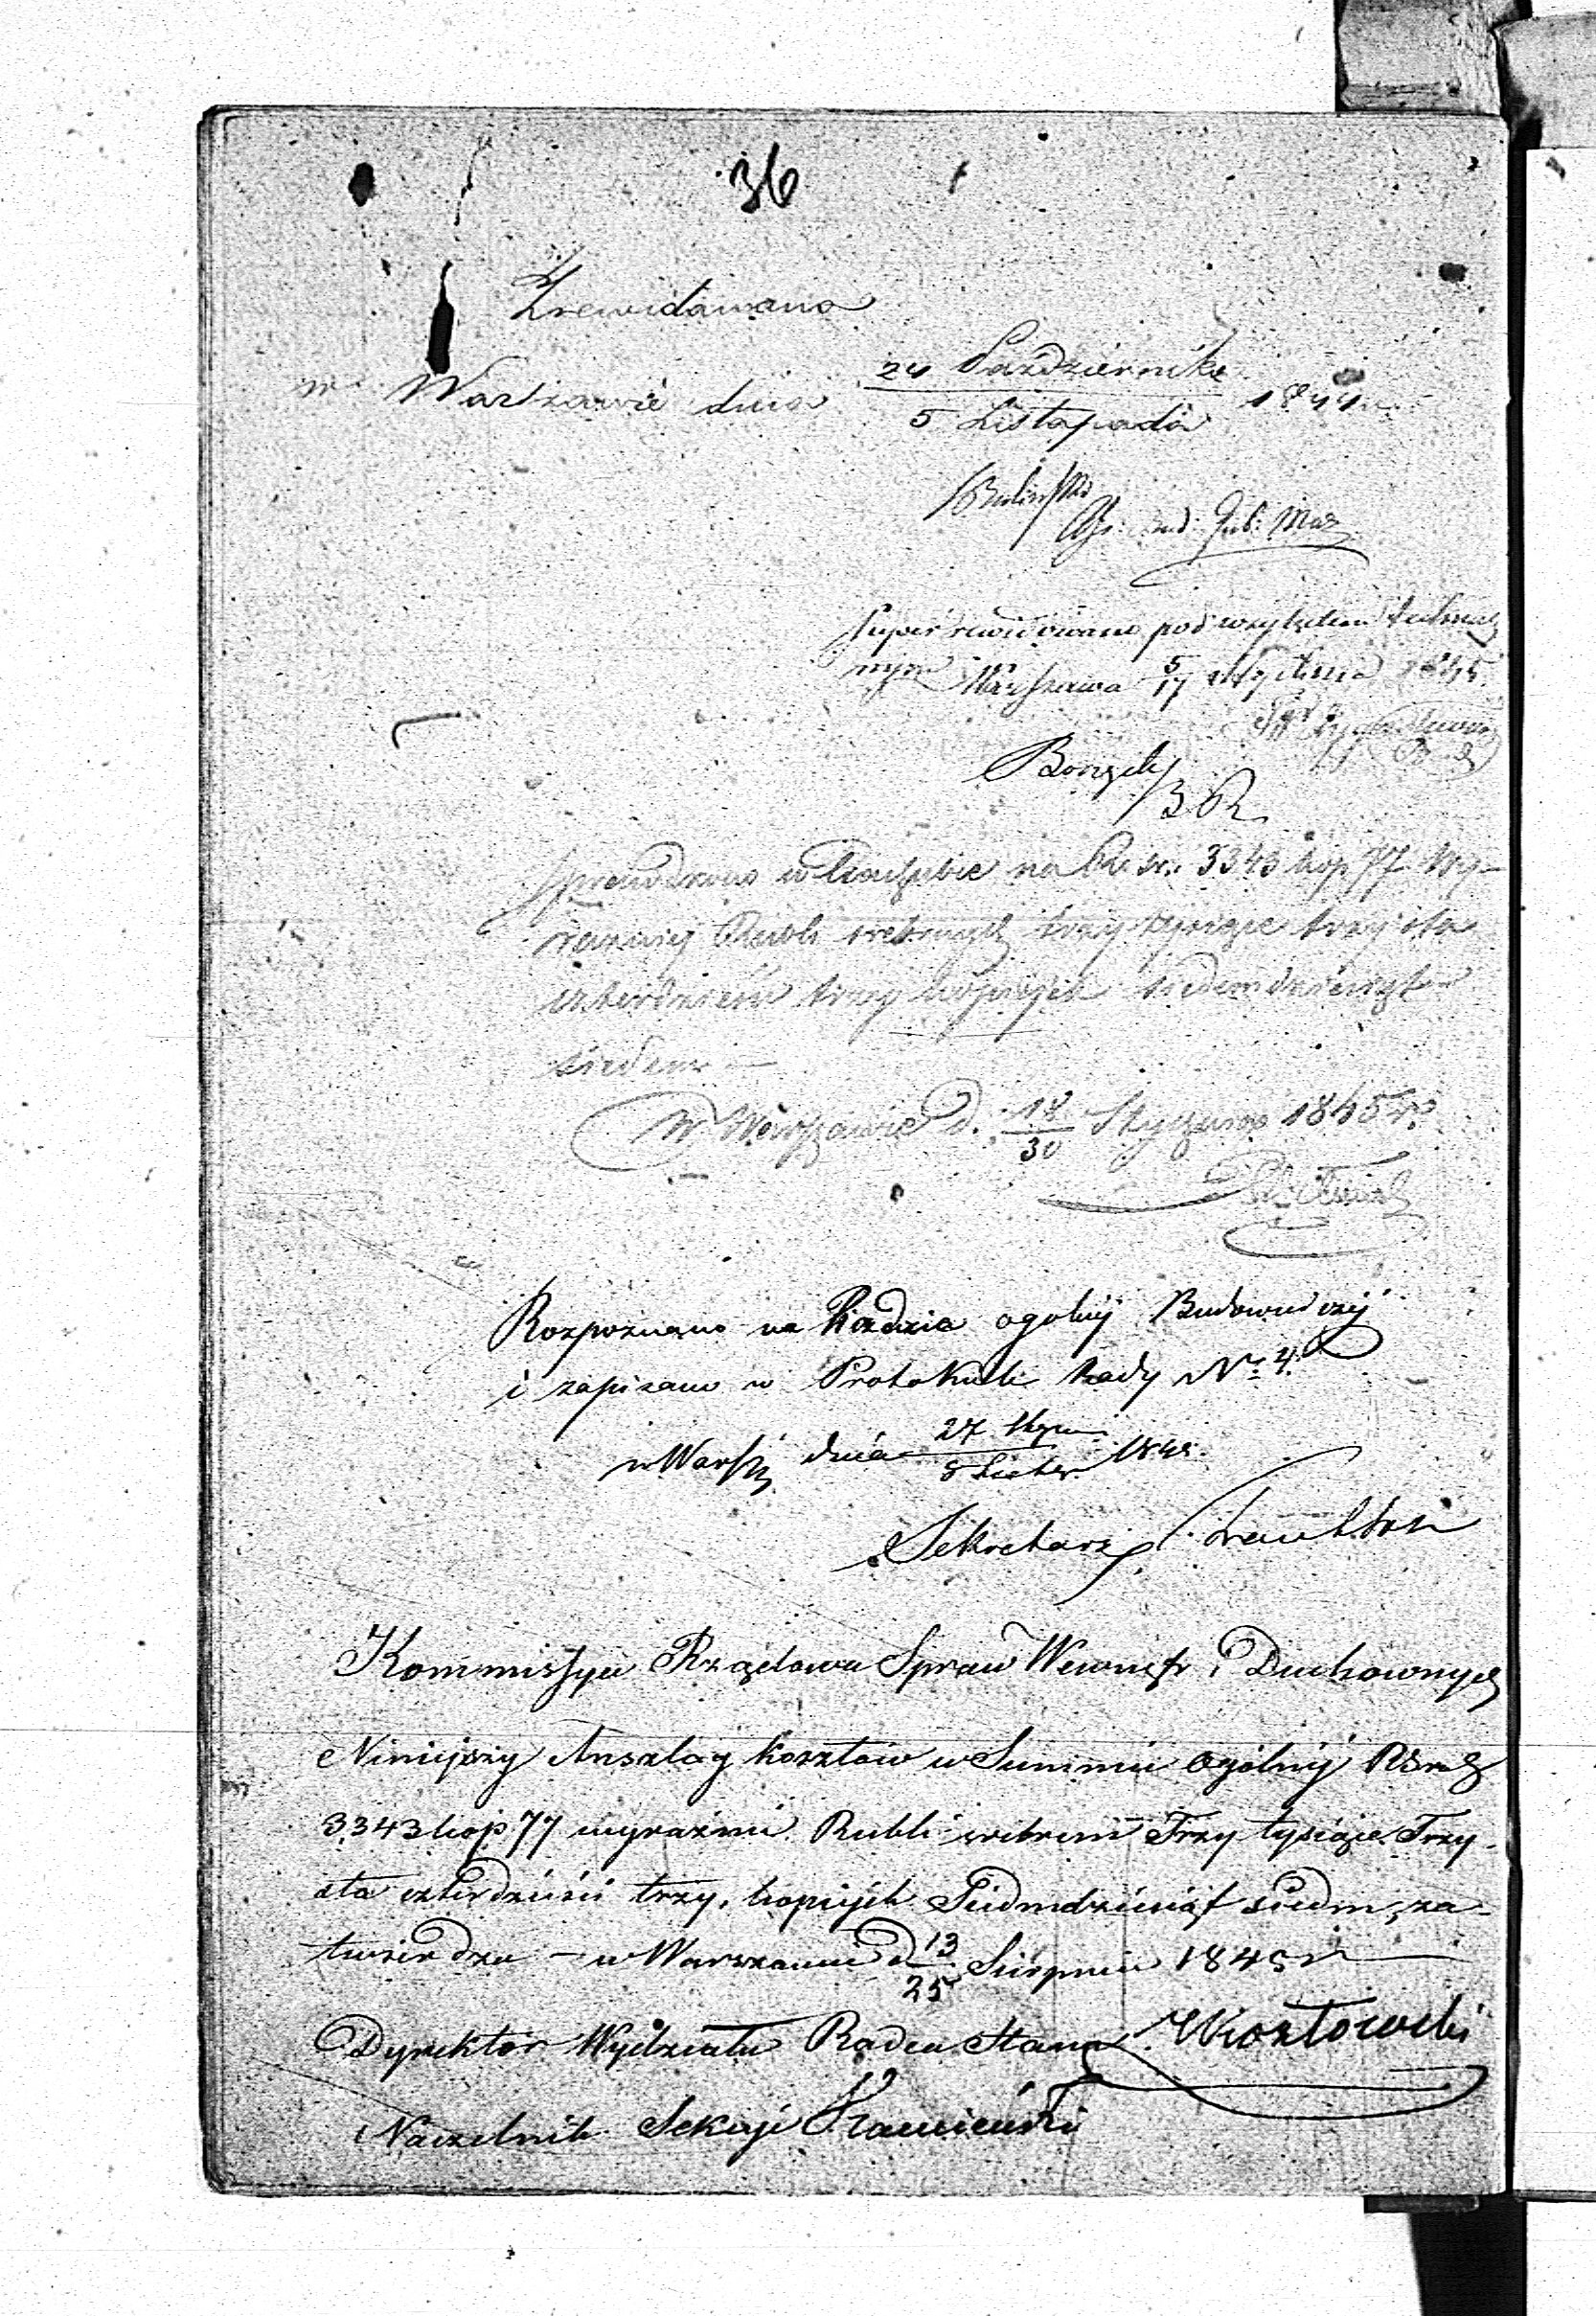 36
Zrewidowano
w Warszawie dnia 24 Października / 5 Listopada 1844 r.
Gub: Maz
Super rewidowano pod względem technicz
nym Warszawa 5/17 Stycznia 1845
B R
Sprawdzono w Rachubie na Rs. 3343 kop 77 wy-
raźniej Rubli srebrnych trzy tysiące trzysta
czterdzieści trzy kopiejek siedemdziesiąt
siedem —
w Warszawie d. 18/30 Stycznia 1845 r.
Rozpoznano na Radzie ogolnej Budowniczej
i zapisano w Protokule Rady No 4.
w Warsz dnia 27 Stycz / 8 Lutego 1845.
Sekretarz
Kommissya Rządowa Spraw Wewnętr i Duchownych
Niniejszy Anszlag kosztów w Summie ogólnej Rsr
3343 kop 77 wyraźnie Rubli srebrem Trzy tysiące Trzy-
sta czterdzieści trzy, kopiejek Siedmdziesiąt siedm, za-
twierdza — w Warszawie d 13/25 Sierpnia 1845 r
Dyrektor Wydziału Radca Stanu Kozłowski
Naczelnik Sekcyi Kamieński